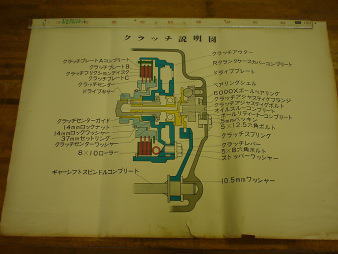 クラッチ説明図
クラッチプレートAコンプリート
クラッチプレートB
クラッチフリクションディスク
クラッチプレートC
クラッチセンター
ドライブギヤー
クラッチセンターガイド
14mmロックナット
14mmロックワッシャー
37mmセットリング
クラッチセンターワッシャー
8×10ローラー
ギヤーシフトスピンドルコンプリート
クラッチアウター
Rクランクケースカバーコンプリート
ドライブプレート
ベアリングシェル
6000Xボールベアリング
クラッチアジャスティングフランジ
クラッチアジャスティングボルト
オイルスルーコンプリート
ボールリティナーコンプリート
5mmパッキン
5×12.5六角ボルト
クラッチスプリング
クラッチレバー
5×8六角ボルト
ストッパーワッシャー
10.5mmワッシャー